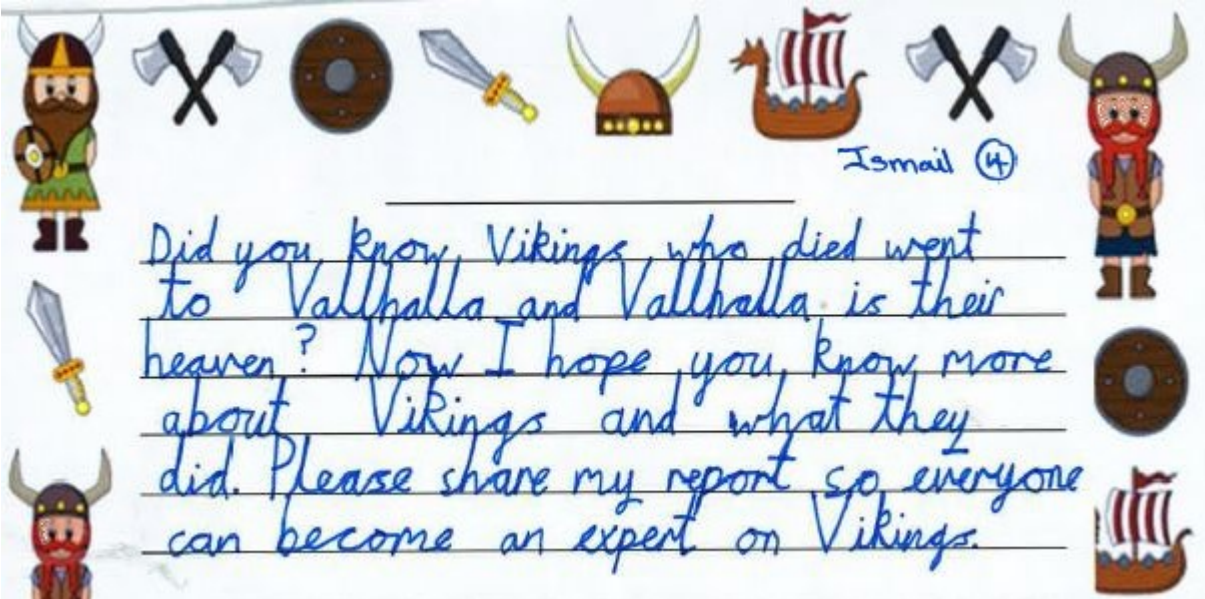 Ismail 4
Did you know Vikings who died went
to Vallhalla and Vallhalla is their
heaven? Now I hope you know more
about Vikings and what they
did. Please share my report so everyone
can become an expert on Vikings.